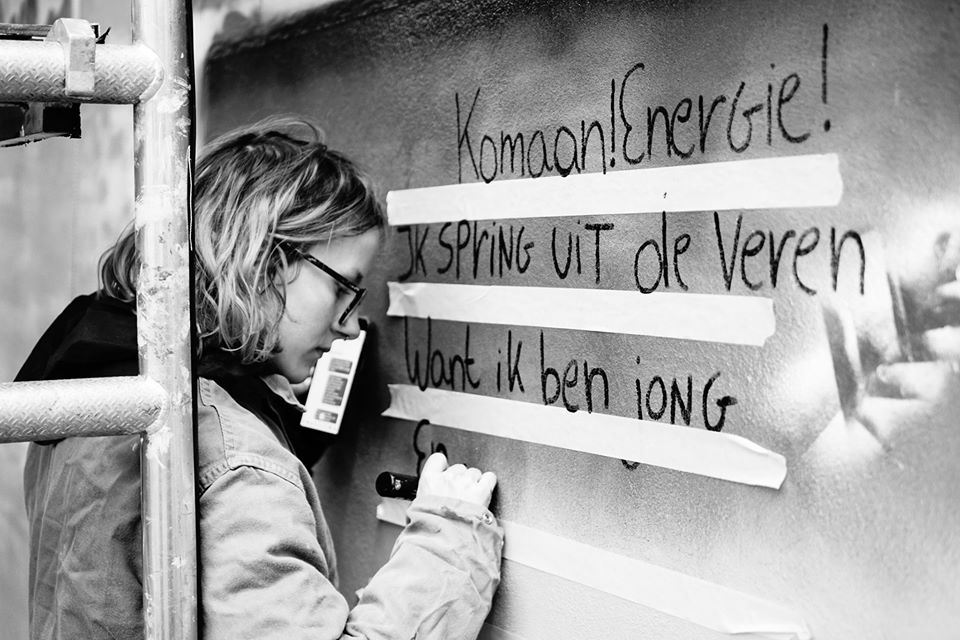 Komaan! Energie!
Ik spring uit de Veren
Want ik ben jong
En